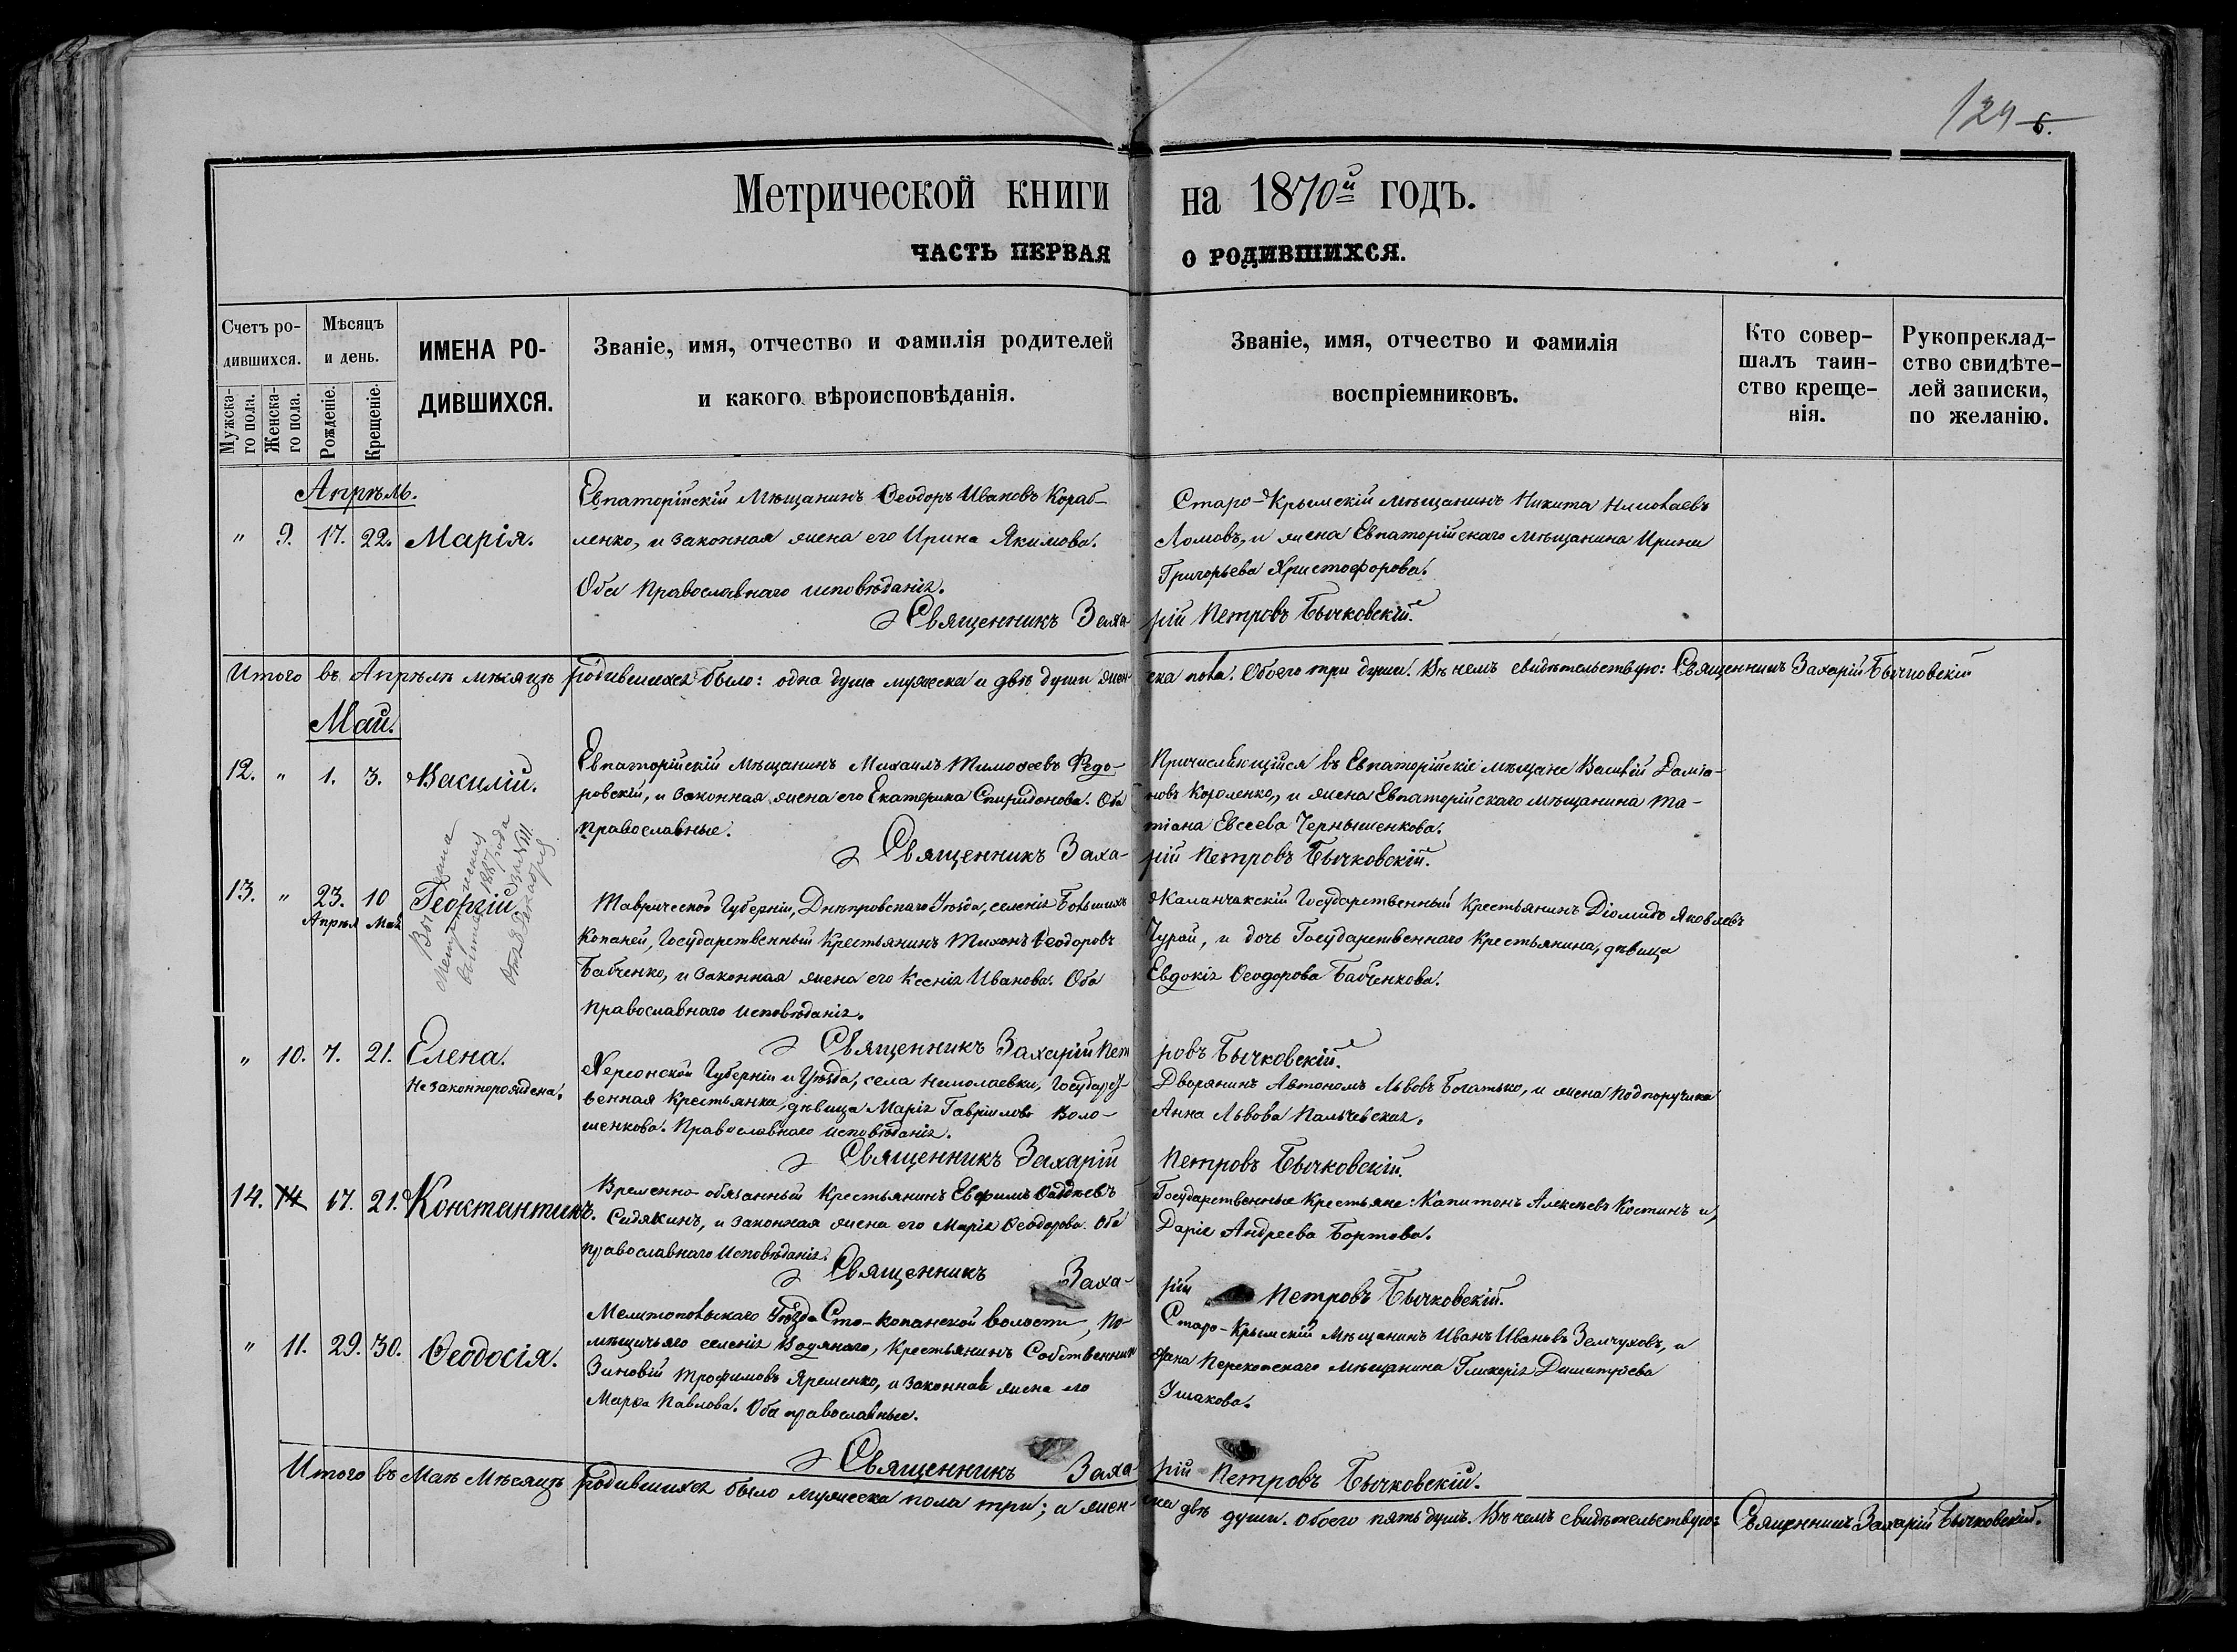 124 б.
Метрической книги на 1870й годъ.
ЧАСТЬ ПЕРВАЯ О РОДИВШИХСЯ.
Счетъ ро-
дившихся.
Мужска-
го пола.
Женска-
го пола.
Мѣсяцъ
и день.
Рожденіе.
Крещеніе.
ИМЕНА РО-
ДИВШИХСЯ.
Званіе, имя, отчество и фамилія родителей
и какого вѣроисповѣданія.
Званіе, имя, отчество и фамилія
воспріемниковъ.
Кто совер-
шалъ таин-
ство креще-
нія.
Рукопреклад-
ство свидѣте-
лей записки,
по желанію.
Апрѣль.
" 9. 17. 22. Марія.
Евпаторійскій Мѣщанинъ Ѳеодоръ Ивановъ Кораб-
ленко, и законная жена его Ирина Якимова.
Оба Православнаго исповѣданія.
Старо-Крымскій мѣщанинъ Никита Николаевъ
Ломовъ, и жена Евпаторійскаго мѣщанина Ирина
Григорьева Христофорова.
Священникъ Захарій Петровъ Бычковскій.
Итого въ Апрѣлѣ мѣсяцѣ родившихся было: одна душа мужеска и двѣ души женска пола. Обоего три души. Въ чемъ свидѣтельствую: Священникъ Захарій Бычковскій
Май.
12. " 1. 3. Василій.
Евпаторійскій Мѣщанинъ Михаилъ Тимоѳеевъ Федо-
ровскій, и законная жена его Екатерина Спиридонова. Оба
православные.
Причисляющійся въ Евпаторійскіе мѣщане Василій Даміа-
новъ Короленко, и жена Евпаторійскаго мѣщанина Та-
тіана Евсеева Чернышенкова.
Священникъ Захарій Петровъ Бычковскій.
13. " 23. 10 Георгій
Апрѣл Мая
1887 года
Декабря
Таврической Губерніи, Днѣпровскаго Уѣзда, селенія Большихъ
Копаней, Государственный Крестьянинъ Тихонъ Ѳеодоровъ
Бабченко, и законная жена его Ксенія Иванова. Оба
православнаго исповѣданія.
Каланчакскій Государственный Крестьянинъ Діомидъ Яковлевъ
Чурай, и дочь Государственнаго Крестьянина, дѣвица
Евдокія Ѳеодорова Бабченкова.
Священникъ Захарій Петровъ Бычковскій.
" 10. 7. 21. Елена.
Незаконнорождена.
Херсонской Губерніи и Уѣзда, села Николаевки, Государст-
венная Крестьянка, дѣвица Марія Гавріилова Воло-
шенкова. Православнаго исповѣданія.
Дворянинъ Автономъ Львовъ Богатько, и жена Подпоручика
Анна Львова Пальчевская.
Священникъ Захарій Петровъ Бычковскій.
14. 14 17. 21. Константинъ.
Временно-обязанный Крестьянинъ Евфимъ Фаддѣевъ
Сидякинъ, и законная жена его Марія Ѳеодорова. Оба
православнаго исповѣданія.
Государственные Крестьяне: Капитонъ Алексѣевъ Костинъ и,
Дарія Андреева Бортова.
Священникъ Захарій Петровъ Бычковскій.
" 11. 29. 30. Ѳеодосія.
Мелитопольскаго Уѣзда Сто-копанской волости, По-
мѣщичьяго селенія Водянаго, Крестьянинъ Собственникъ
Зиновій Трофимовъ Яременко, и законная жена его
Марѳа Павлова. Оба православные.
Старо-Крымскій Мѣщанинъ Иванъ Ивановъ Земчуховъ, и
жена Перекопскаго мѣщанина Гликерія Димитріева
Ушакова.
Священникъ Захарій Петровъ Бычковскій.
Итого въ Маѣ Мѣсяцѣ родившихся было мужеска пола три; а женска двѣ души. Обоего пять душъ. Въ чемъ свидѣтельствую: Священникъ Захарій Бычковскій.